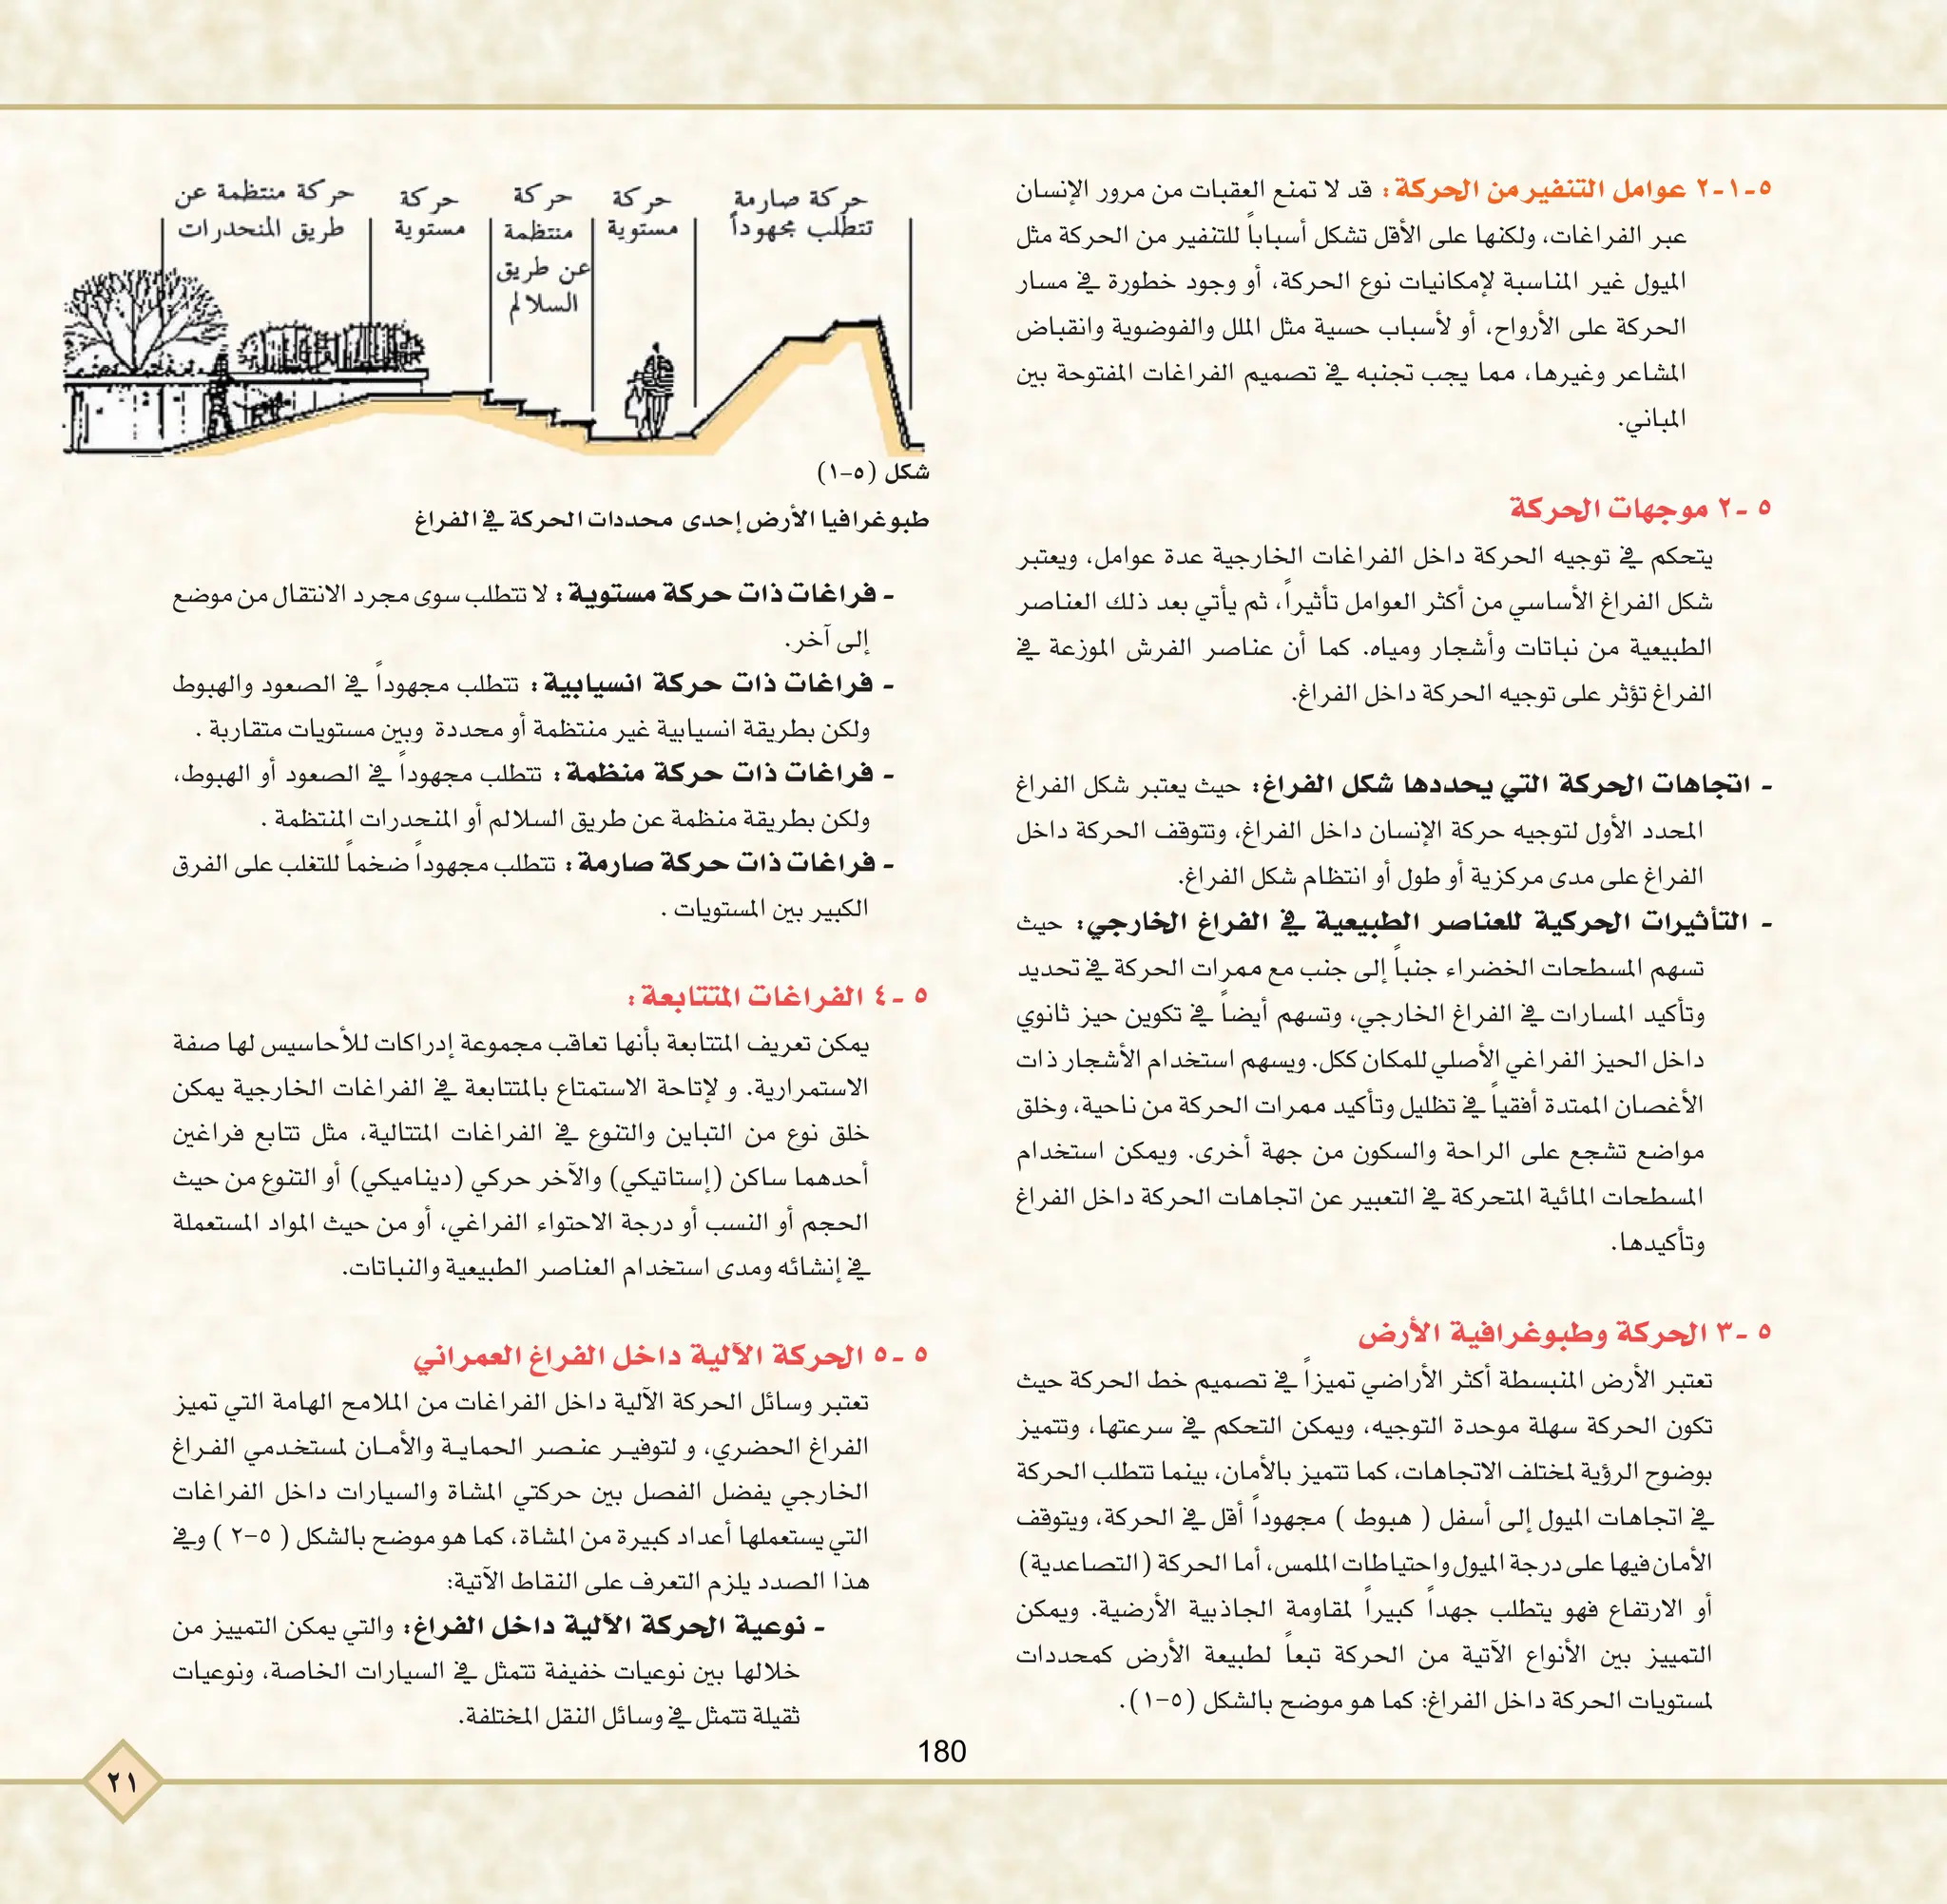 ٥-١-٢ عوامل التنفير من الحركة : قد لا تمنع العقبات من مرور الإنسان
عبر الفراغات، ولكنها على الأقل تشكل أسباباً للتنفير من الحركة مثل
الميول غير المناسبة لإمكانيات نوع الحركة، أو وجود خطورة في مسار
الحركة على الأرواح، أو لأسباب حسية مثل الملل والفوضوية وانقباض
المشاعر وغيرها، مما يجب تجنبه في تصميم الفراغات المفتوحة بين
المباني.
٥ -٢ موجهات الحركة
يتحكم في توجيه الحركة داخل الفراغات الخارجية عدة عوامل، ويعتبر
شكل الفراغ الأساسي من أكثر العوامل تأثيراً، ثم يأتي بعد ذلك العناصر
الطبيعية من نباتات وأشجار ومياه. كما أن عناصر الفرش الموزعة في
الفراغ تؤثر على توجيه الحركة داخل الفراغ.
- اتجاهات الحركة التي يحددها شكل الفراغ: حيث يعتبر شكل الفراغ
المحدد الأول لتوجيه حركة الإنسان داخل الفراغ، وتتوقف الحركة داخل
الفراغ على مدى مركزية أو طول أو انتظام شكل الفراغ.
- التأثيرات الحركية للعناصر الطبيعية في الفراغ الخارجي: حيث
تسهم المسطحات الخضراء جنباً إلى جنب مع ممرات الحركة في تحديد
وتأكيد المسارات في الفراغ الخارجي، وتسهم أيضاً في تكوين حيز ثانوي
داخل الحيز الفراغي الأصلي للمكان ككل. ويسهم استخدام الأشجار ذات
الأغصان الممتدة أفقياً في تظليل وتأكيد ممرات الحركة من ناحية، وخلق
مواضع تشجع على الراحة والسكون من جهة أخرى. ويمكن استخدام
المسطحات المائية المتحركة في التعبير عن اتجاهات الحركة داخل الفراغ
وتأكيدها.
٥ -٣ الحركة وطبوغرافية الأرض
تعتبر الأرض المنبسطة أكثر الأراضي تميزاً في تصميم خط الحركة حيث
تكون الحركة سهلة موحدة التوجيه، ويمكن التحكم في سرعتها، وتتميز
بوضوح الرؤية لمختلف الاتجاهات، كما تتميز بالأمان، بينما تتطلب الحركة
في اتجاهات الميول إلى أسفل ( هبوط ) مجهوداً أقل في الحركة، ويتوقف
الأمان فيها على درجة الميول واحتياطات الملمس، أما الحركة (التصاعدية)
أو الارتفاع فهو يتطلب جهداً كبيراً لمقاومة الجاذبية الأرضية. ويمكن
التمييز بين الأنواع الآتية من الحركة تبعاً لطبيعة الأرض كمحددات
لمستويات الحركة داخل الفراغ: كما هو موضح بالشكل (٥-١).
حركة صارمة
تتطلب مجهوداً
حركة
مستوية
حركة
منتظمة
عن طريق
السلالم
حركة
مستوية
حركة منتظمة عن
طريق المنحدرات
شكل (٥-١)
طبوغرافيا الأرض إحدى محددات الحركة في الفراغ
- فراغات ذات حركة مستوية : لا تتطلب سوى مجرد الانتقال من موضع
إلى آخر.
- فراغات ذات حركة انسيابية : تتطلب مجهوداً في الصعود والهبوط
ولكن بطريقة انسيابية غير منتظمة أو محددة وبين مستويات متقاربة .
- فراغات ذات حركة منظمة : تتطلب مجهوداً في الصعود أو الهبوط،
ولكن بطريقة منظمة عن طريق السلالم أو المنحدرات المنتظمة .
- فراغات ذات حركة صارمة : تتطلب مجهوداً ضخماً للتغلب على الفرق
الكبير بين المستويات .
٥ -٤ الفراغات المتتابعة :
يمكن تعريف المتتابعة بأنها تعاقب مجموعة إدراكات للأحاسيس لها صفة
الاستمرارية. و لإتاحة الاستمتاع بالمتتابعة في الفراغات الخارجية يمكن
خلق نوع من التباين والتنوع في الفراغات المتتالية، مثل تتابع فراغين
أحدهما ساكن (إستاتيكي) والآخر حركي (ديناميكي) أو التنوع من حيث
الحجم أو النسب أو درجة الاحتواء الفراغي، أو من حيث المواد المستعملة
في إنشائه ومدى استخدام العناصر الطبيعية والنباتات.
٥ -٥ الحركة الآلية داخل الفراغ العمراني
تعتبر وسائل الحركة الآلية داخل الفراغات من الملامح الهامة التي تميز
الفراغ الحضري، و لتوفير عنصر الحماية والأمان لمستخدمي الفراغ
الخارجي يفضل الفصل بين حركتي المشاة والسيارات داخل الفراغات
التي يستعملها أعداد كبيرة من المشاة، كما هو موضح بالشكل ( ٥-٢ ) وفي
هذا الصدد يلزم التعرف على النقاط الآتية:
- نوعية الحركة الآلية داخل الفراغ: والتي يمكن التمييز من
خلالها بين نوعيات خفيفة تتمثل في السيارات الخاصة، ونوعيات
ثقيلة تتمثل في وسائل النقل المختلفة.
180
٢١